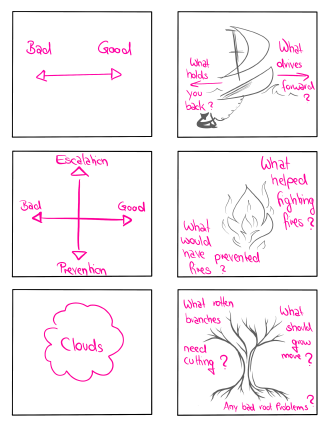 Bad Good
What holds you back?
What drives forward?
Escalation
Bad Good
Prevention
What helped fighting fires?
What would have prevented fires?
Clouds
What rotten branches need cutting?
What should grow more?
Any bad root problems?